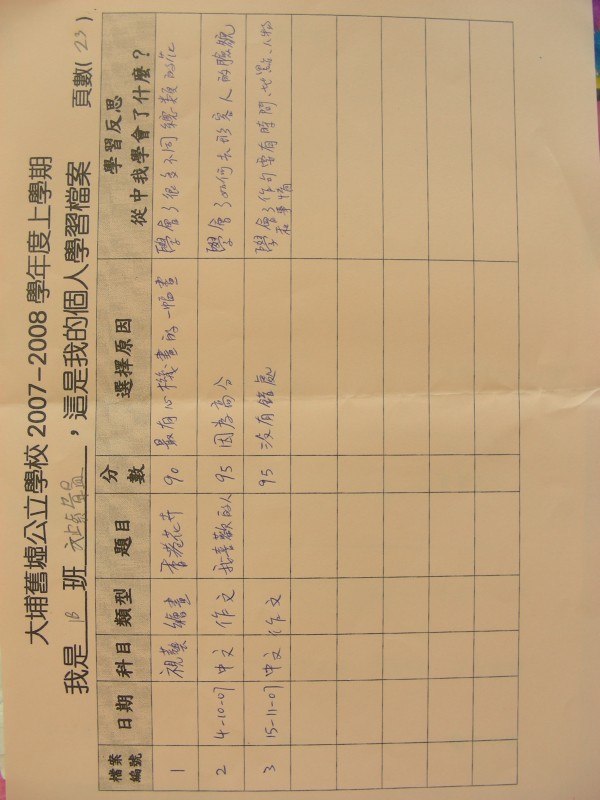 大埔舊墟公立學校 2007-2008 學年度上學期
我是 1B 班 ，這是我的個人學習檔案 頁數( 23 )
檔案編號 日期 科目 類型 題目 分數 選擇原因 學習反思 從中我學會了什麼？
1 視藝 繪畫 香港花卉 90 最有心機畫的一幅畫 學會了很多不同種類的花
2 4-10-07 中文 作文 我喜歡的人 95 因為高分 學會了如何去形容人的臉貌
3 15-11-07 中文 作文 95 沒有錯處 學會了作句要有時間、地點、人物和事情